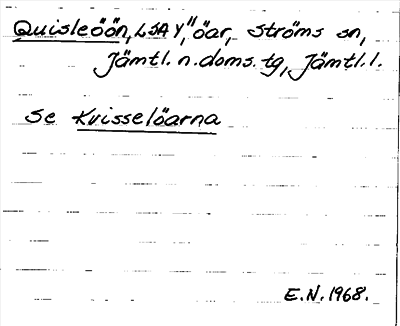 Quisleöön, LSA Y, "öar, Ströms sn,
Jämtl. n. doms. tg, Jämtl. l.
Se Kvisselöarna
E.N. 1968.